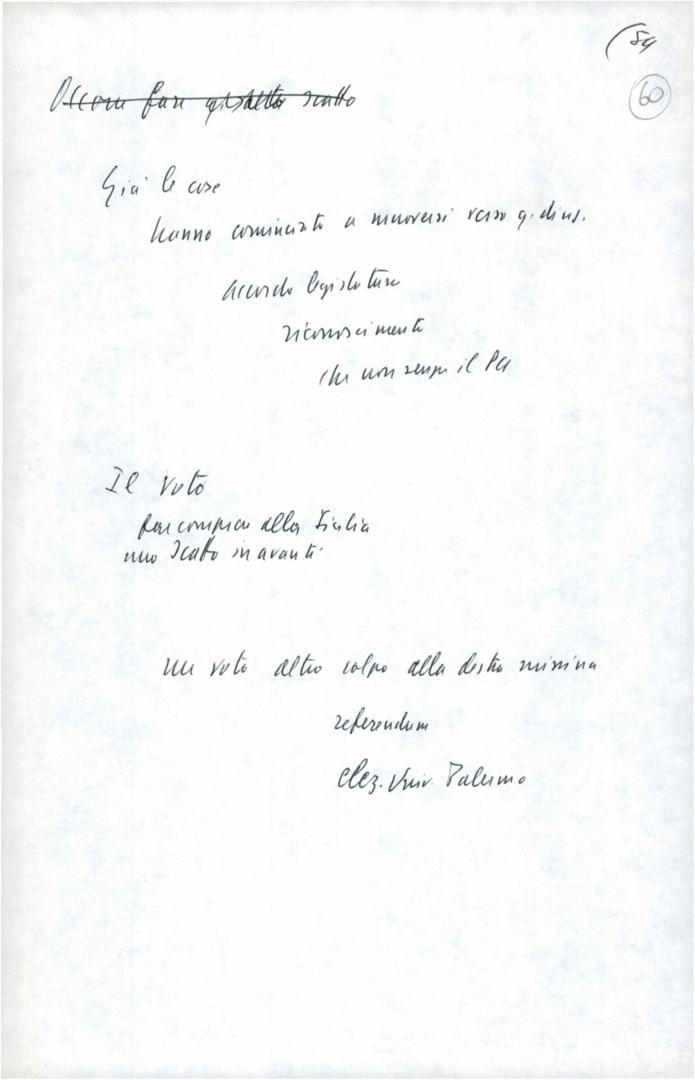 (59
60
Occorre fare questo scatto
Già le cose
hanno cominciato a muoversi verso q. dires.
accordo legislatura
riconoscimento
che non senza il PCI
Il voto
far compiere alla Sicilia
uno scatto in avanti
un voto altro colpo alla destra missina
referendum
elez. Univ. Palermo